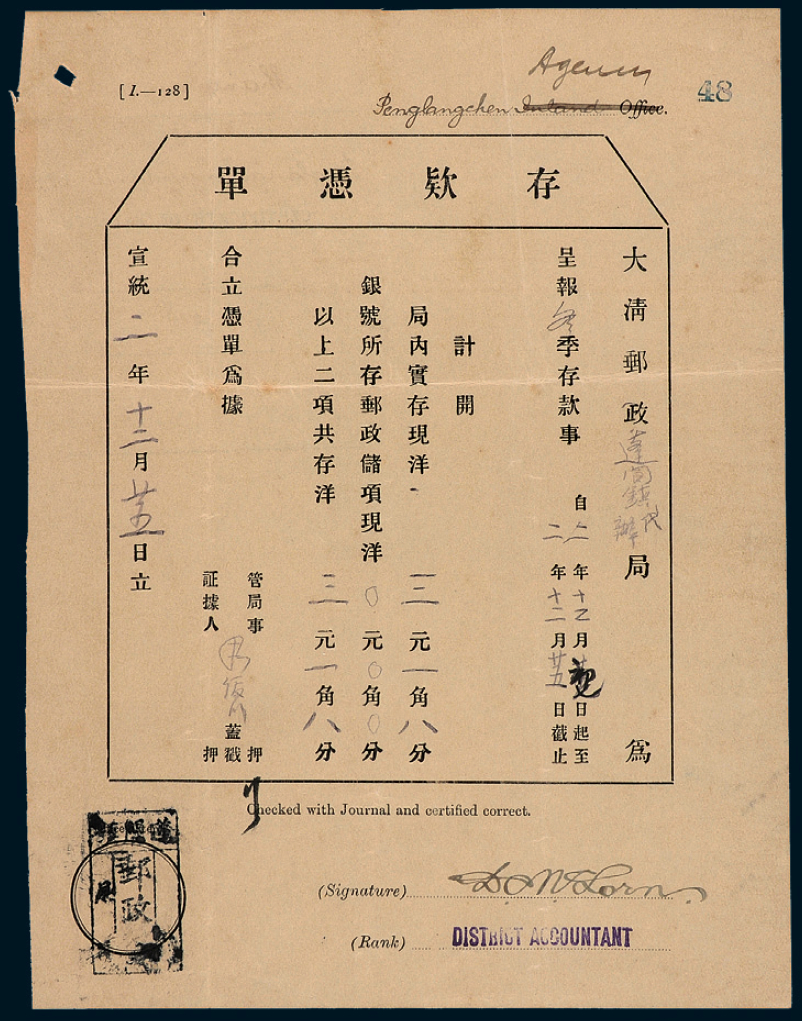 [I.—128]
Agency
Penglangchen Inland Office.
48
存欵憑單
大清郵政蓬閬鎮代辦局為
呈報冬季存款事
自二年十二月日起至
二年十二月廿五日截止
計開
局內實存現洋三元一角八分
銀號所存郵政儲項現洋〇元〇角〇分
以上二項共存洋三元一角八分
合立憑單爲據
管局事 押
蓋戳
証據人 押
宣統二年十二月廿五日立
Checked with Journal and certified correct.
(Signature)
(Rank) DISTRICT ACCOUNTANT
郵政